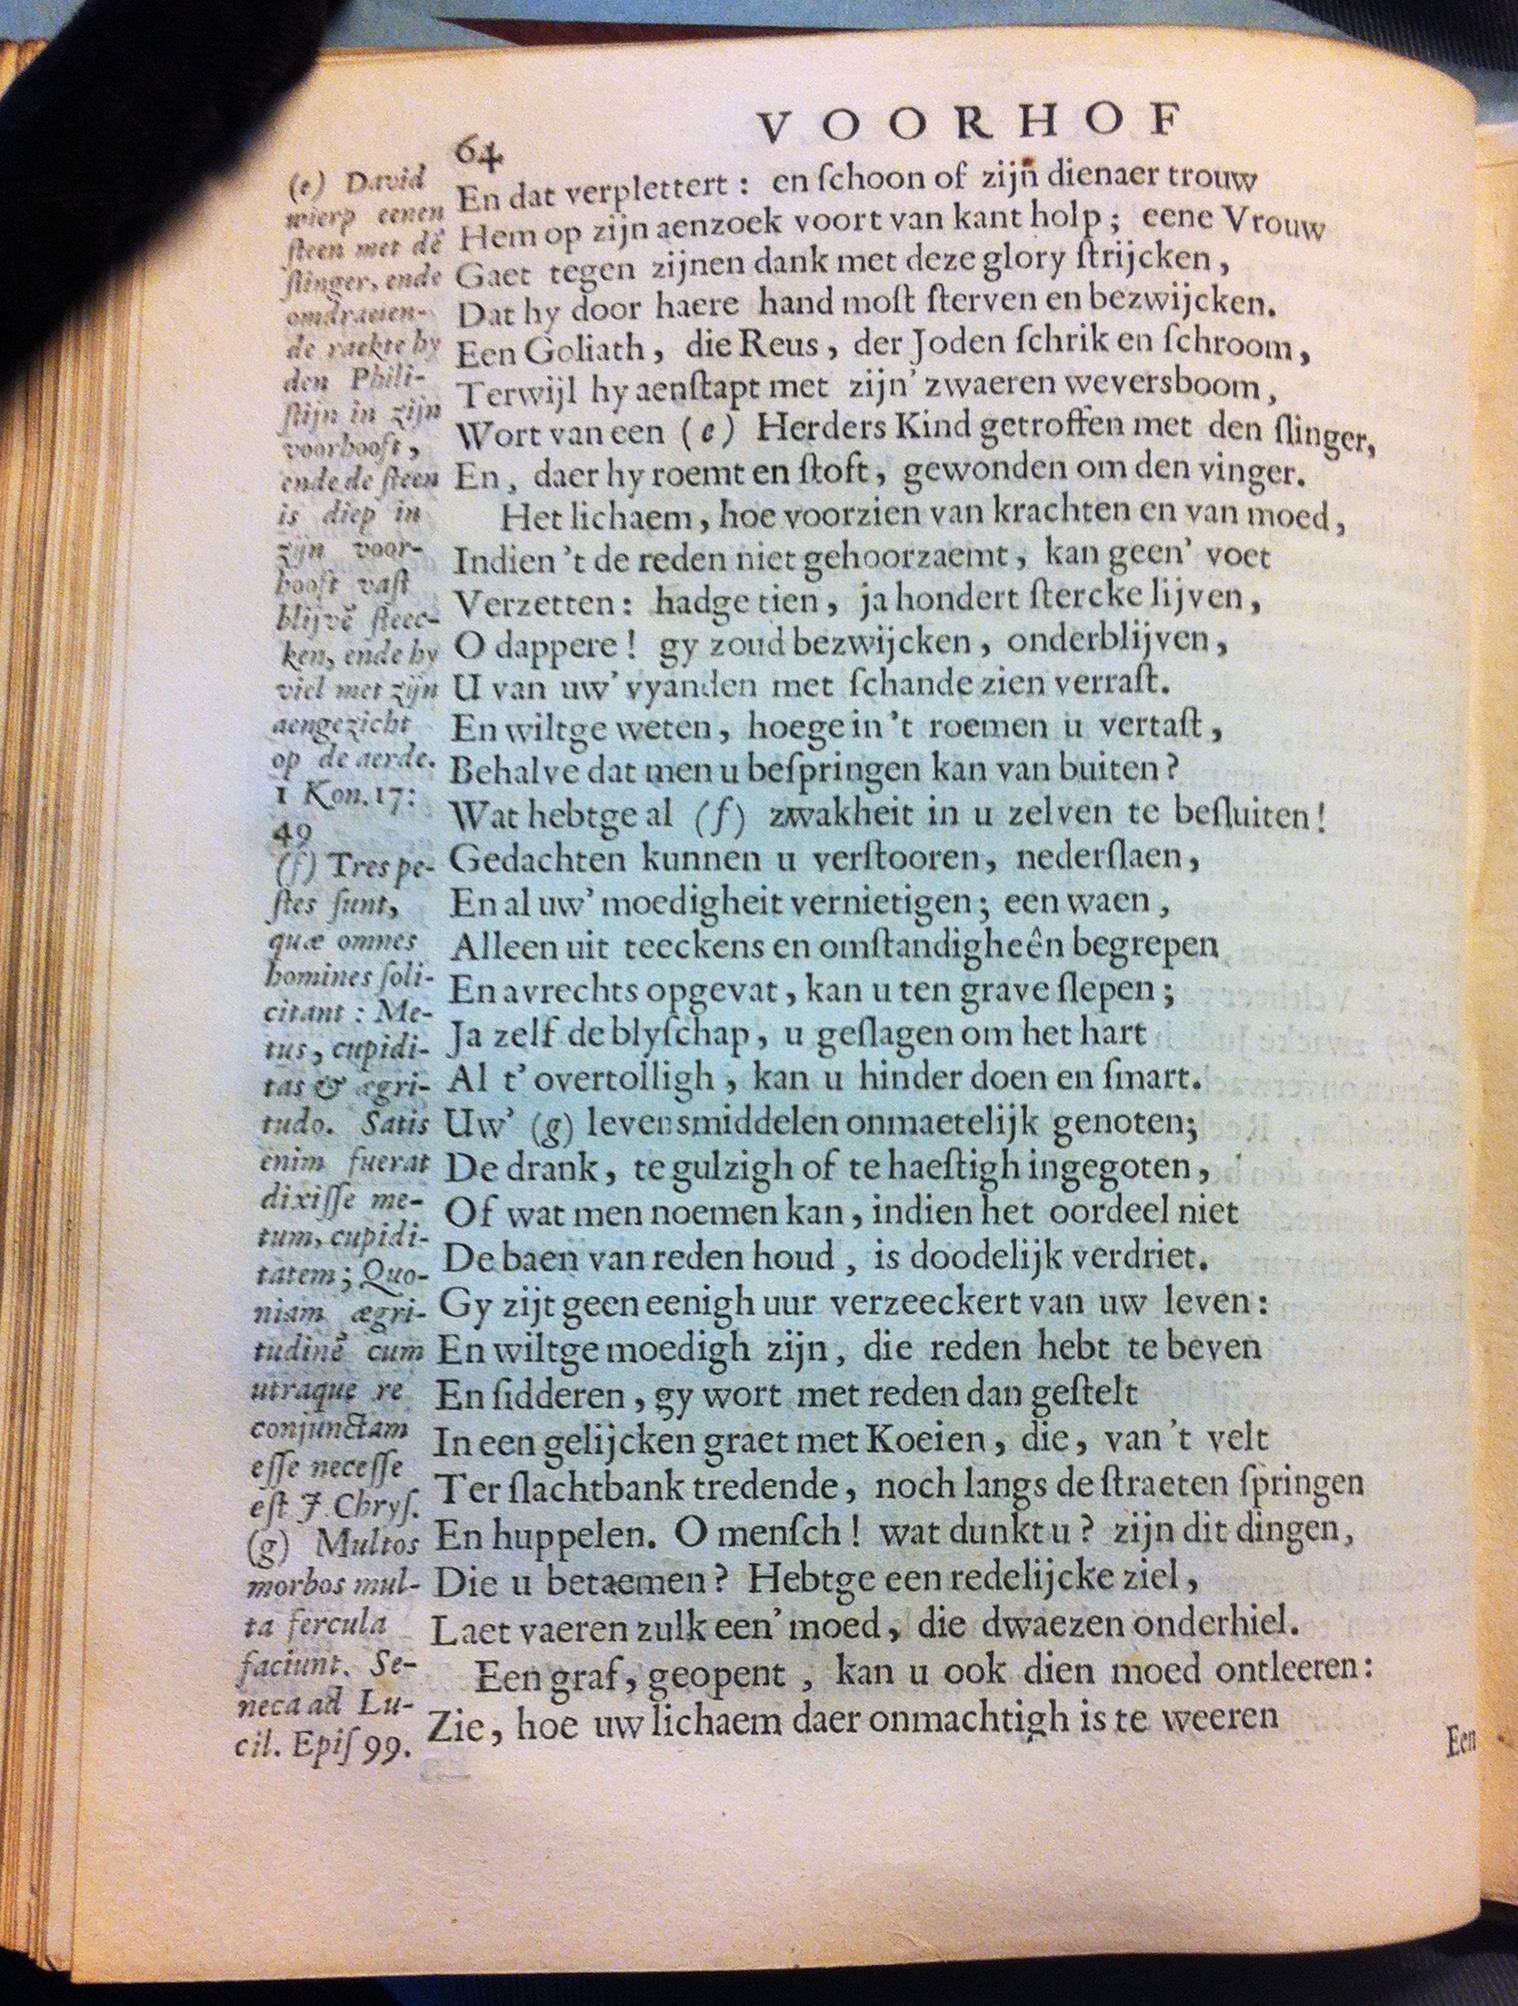 VOORHOF
64
En dat verplettert: en ſchoon of zijn̄ dienaer trouw
Hem op zijn aenzoek voort van kant holp; eene Vrouw
Gaet tegen zijnen dank met deze glory ſtrijcken,
Dat hy door haere hand moſt ſterven en bezwijcken.
Een Goliath, die Reus, der Joden ſchrik en ſchroom,
Terwijl hy aenſtapt met zijn' zwaeren weversboom,
Wort van een (e) Herders Kind getroffen met den ſlinger,
En, daer hy roemt en ſtoft, gewonden om den vinger.
Het lichaem, hoe voorzien van krachten en van moed,
Indien 't de reden niet gehoorzaemt, kan geen' voet
Verzetten: hadge tien, ja hondert ſtercke lijven,
O dappere! gy zoud bezwijcken, onderblijven,
U van uw' vyanden met ſchande zien verraſt.
En wiltge weten, hoege in 't roemen u vertaſt,
Behalve dat men u beſpringen kan van buiten?
Wat hebtge al (f) zwakheit in u zelven te beſluiten!
Gedachten kunnen u verſtooren, nederſlaen,
En al uw' moedigheit vernietigen; een waen,
Alleen uit teeckens en omſtandigheên begrepen
En avrechts opgevat, kan u ten grave ſlepen;
Ja zelf de blyſchap, u geſlagen om het hart
Al t' overtolligh, kan u hinder doen en ſmart.
Uw' (g) levensmiddelen onmaetelijk genoten;
De drank, te gulzigh of te haeſtigh ingegoten,
Of wat men noemen kan, indien het oordeel niet
De baen van reden houd, is doodelijk verdriet.
Gy zijt geen eenigh uur verzeeckert van uw leven:
En wiltge moedigh zijn, die reden hebt te beven
En ſidderen, gy wort met reden dan geſtelt
In een gelijcken graet met Koeien, die, van 't velt
Ter ſlachtbank tredende, noch langs de ſtraeten ſpringen
En huppelen. O menſch! wat dunkt u? zijn dit dingen,
Die u betaemen? Hebtge een redelijcke ziel,
Laet vaeren zulk een' moed, die dwaezen onderhiel.
Een graf, geopent, kan u ook dien moed ontleeren:
Zie, hoe uw lichaem daer onmachtigh is te weeren
Een
(e) David
wierp eenen
ſteen met dē
ſlinger, ende
omdraeien-
de raekte hy
den Phili-
ſtijn in zijn
voorhooft,
ende de ſteen
is diep in
zijn voor-
hooft vaſt
blijvē ſteec-
ken, ende hy
viel met zijn
aengezicht
op de aerde.
1 Kon. 17:
49
(f) Tres pe-
ſtes ſunt,
quæ omnes
homines ſoli-
citant: Me-
tus, cupidi-
tas & ægri-
tudo. Satis
enim fuerat
dixiſſe me-
tum, cupidi-
tatem; Quo-
niam ægri-
tudinē cum
utraque re
conjunctam
eſſe neceſſe
eſt J. Chryſ.
(g) Multos
morbos mul-
ta fercula
faciunt. Se-
neca ad Lu-
cil. Epiſ 99.